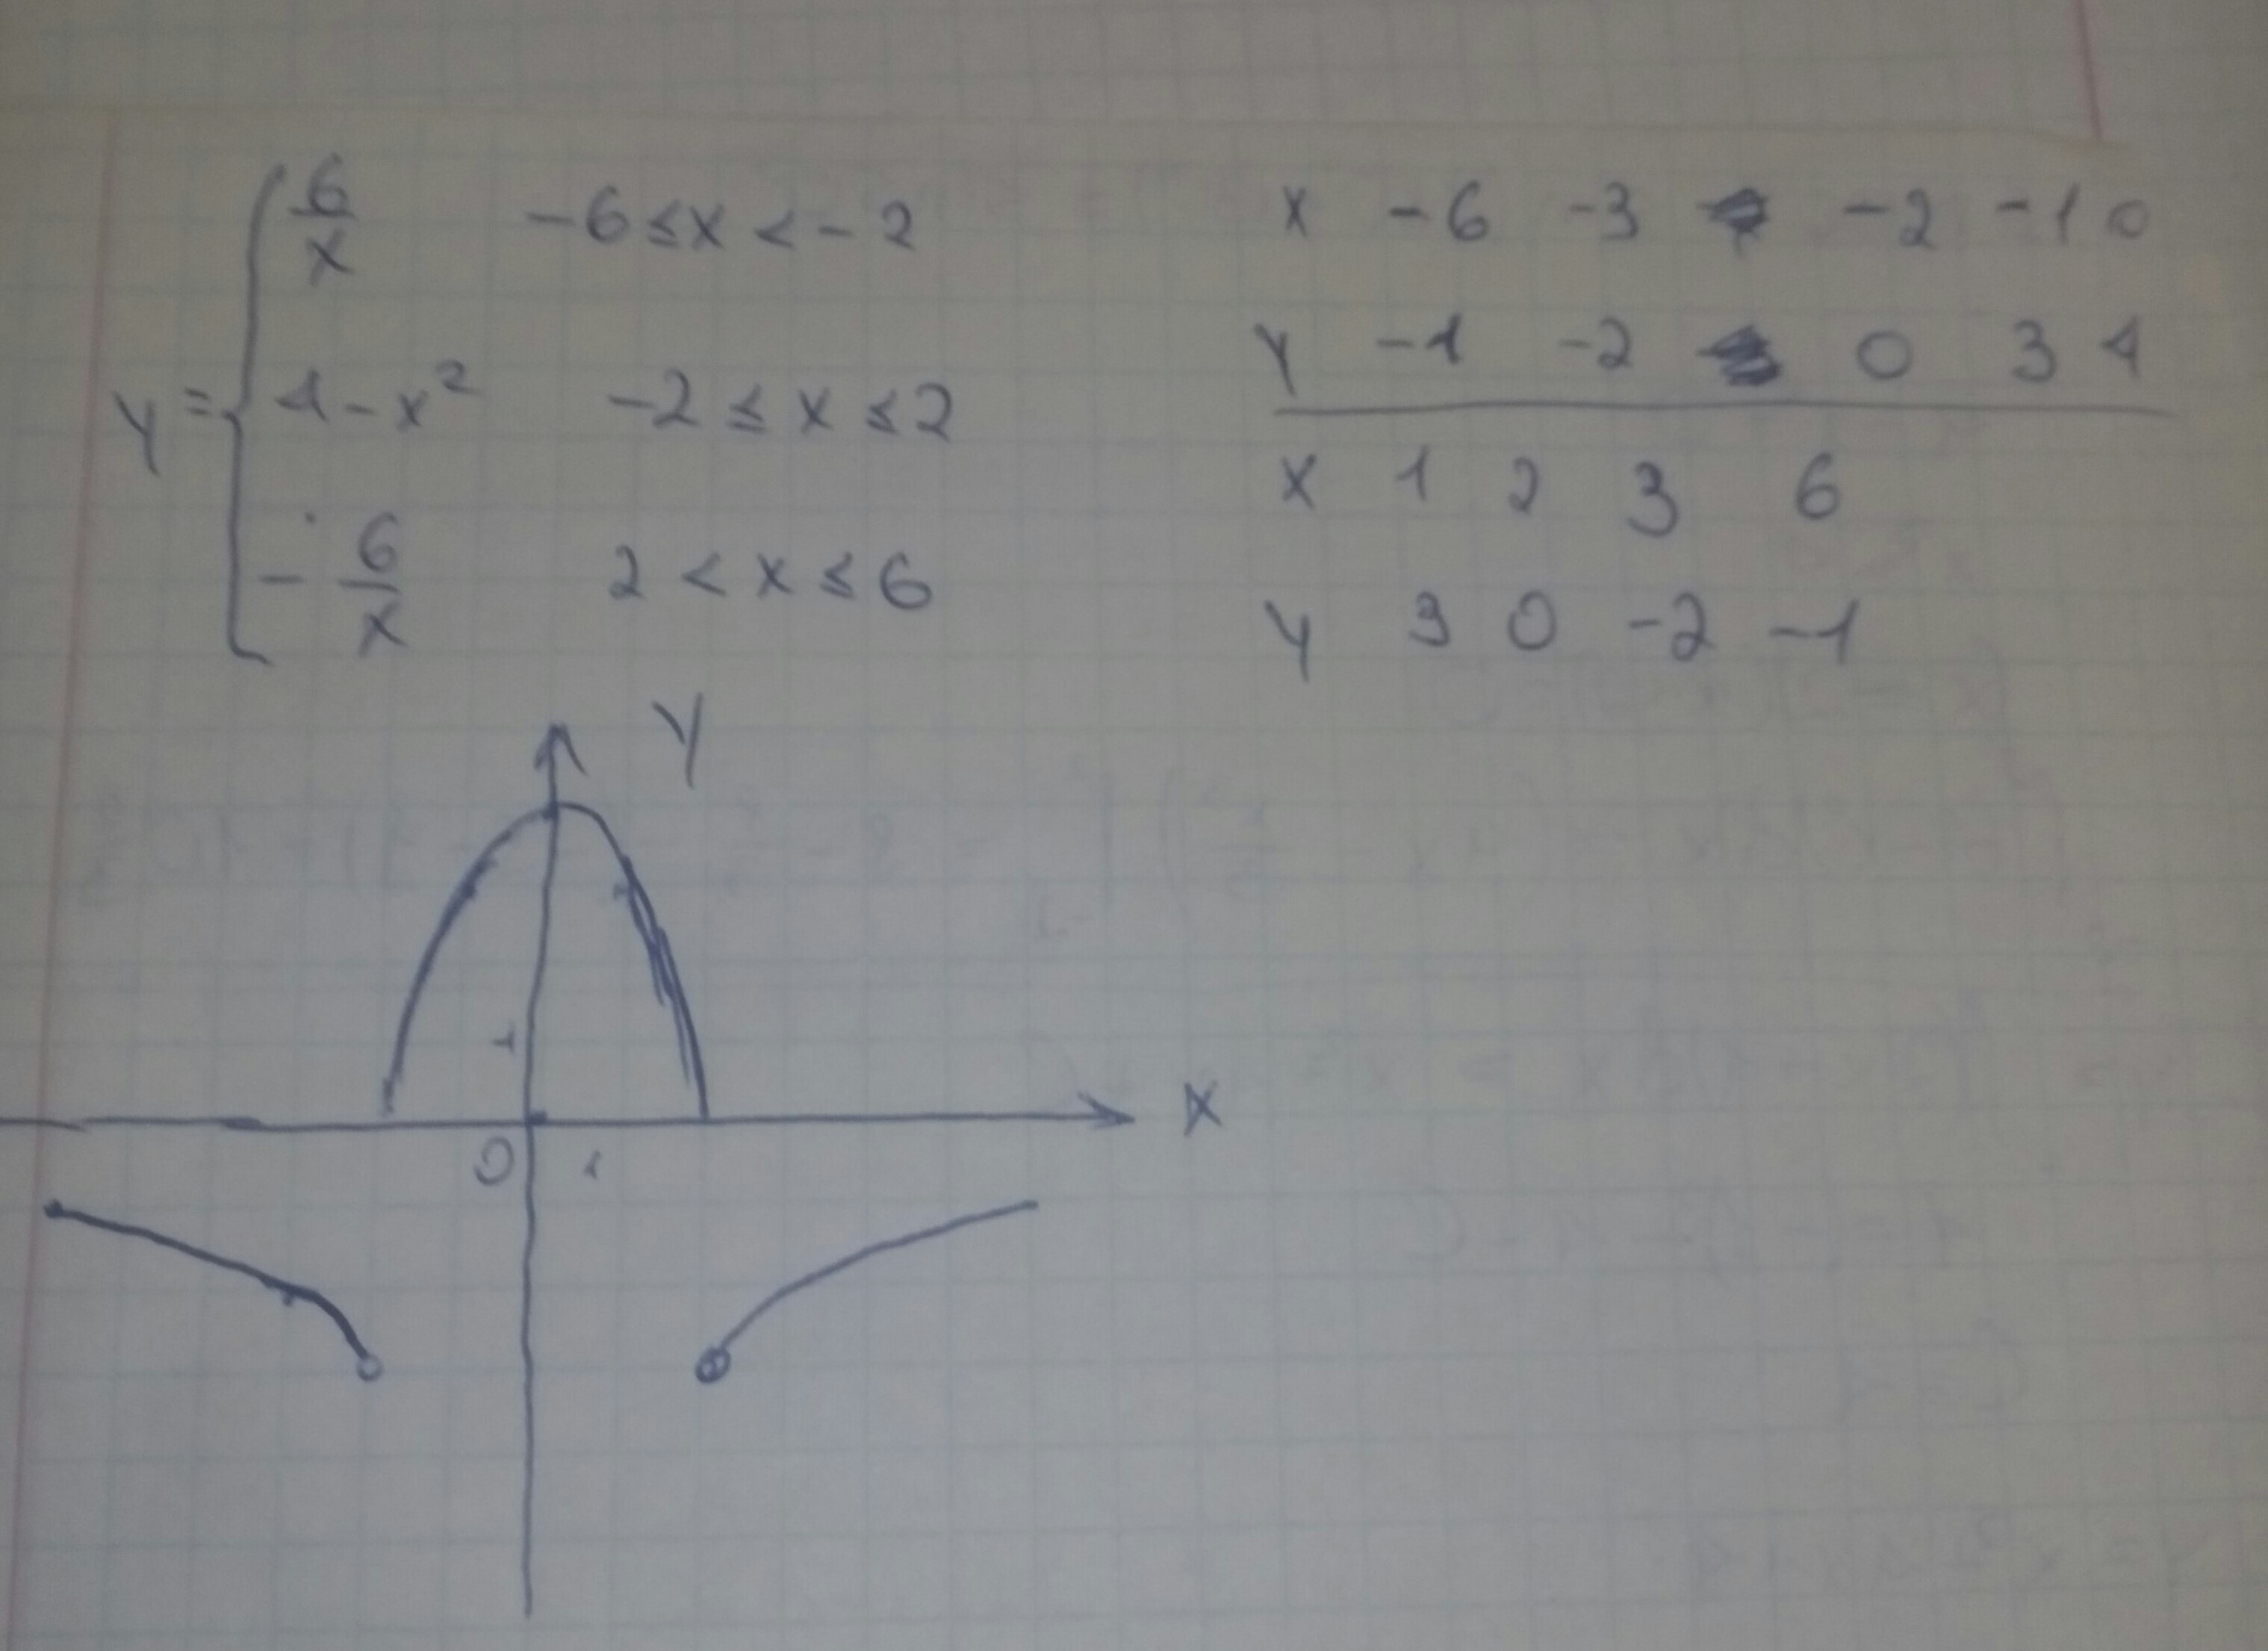 y = { 6/x   -6 ≤ x < -2
4 - x²   -2 ≤ x ≤ 2
- 6/x   2 < x ≤ 6
x -6 -3 -2 -1 0
y -1 -2 0 3 4
x 1 2 3 6
y 3 0 -2 -1
y
1
x
0 1